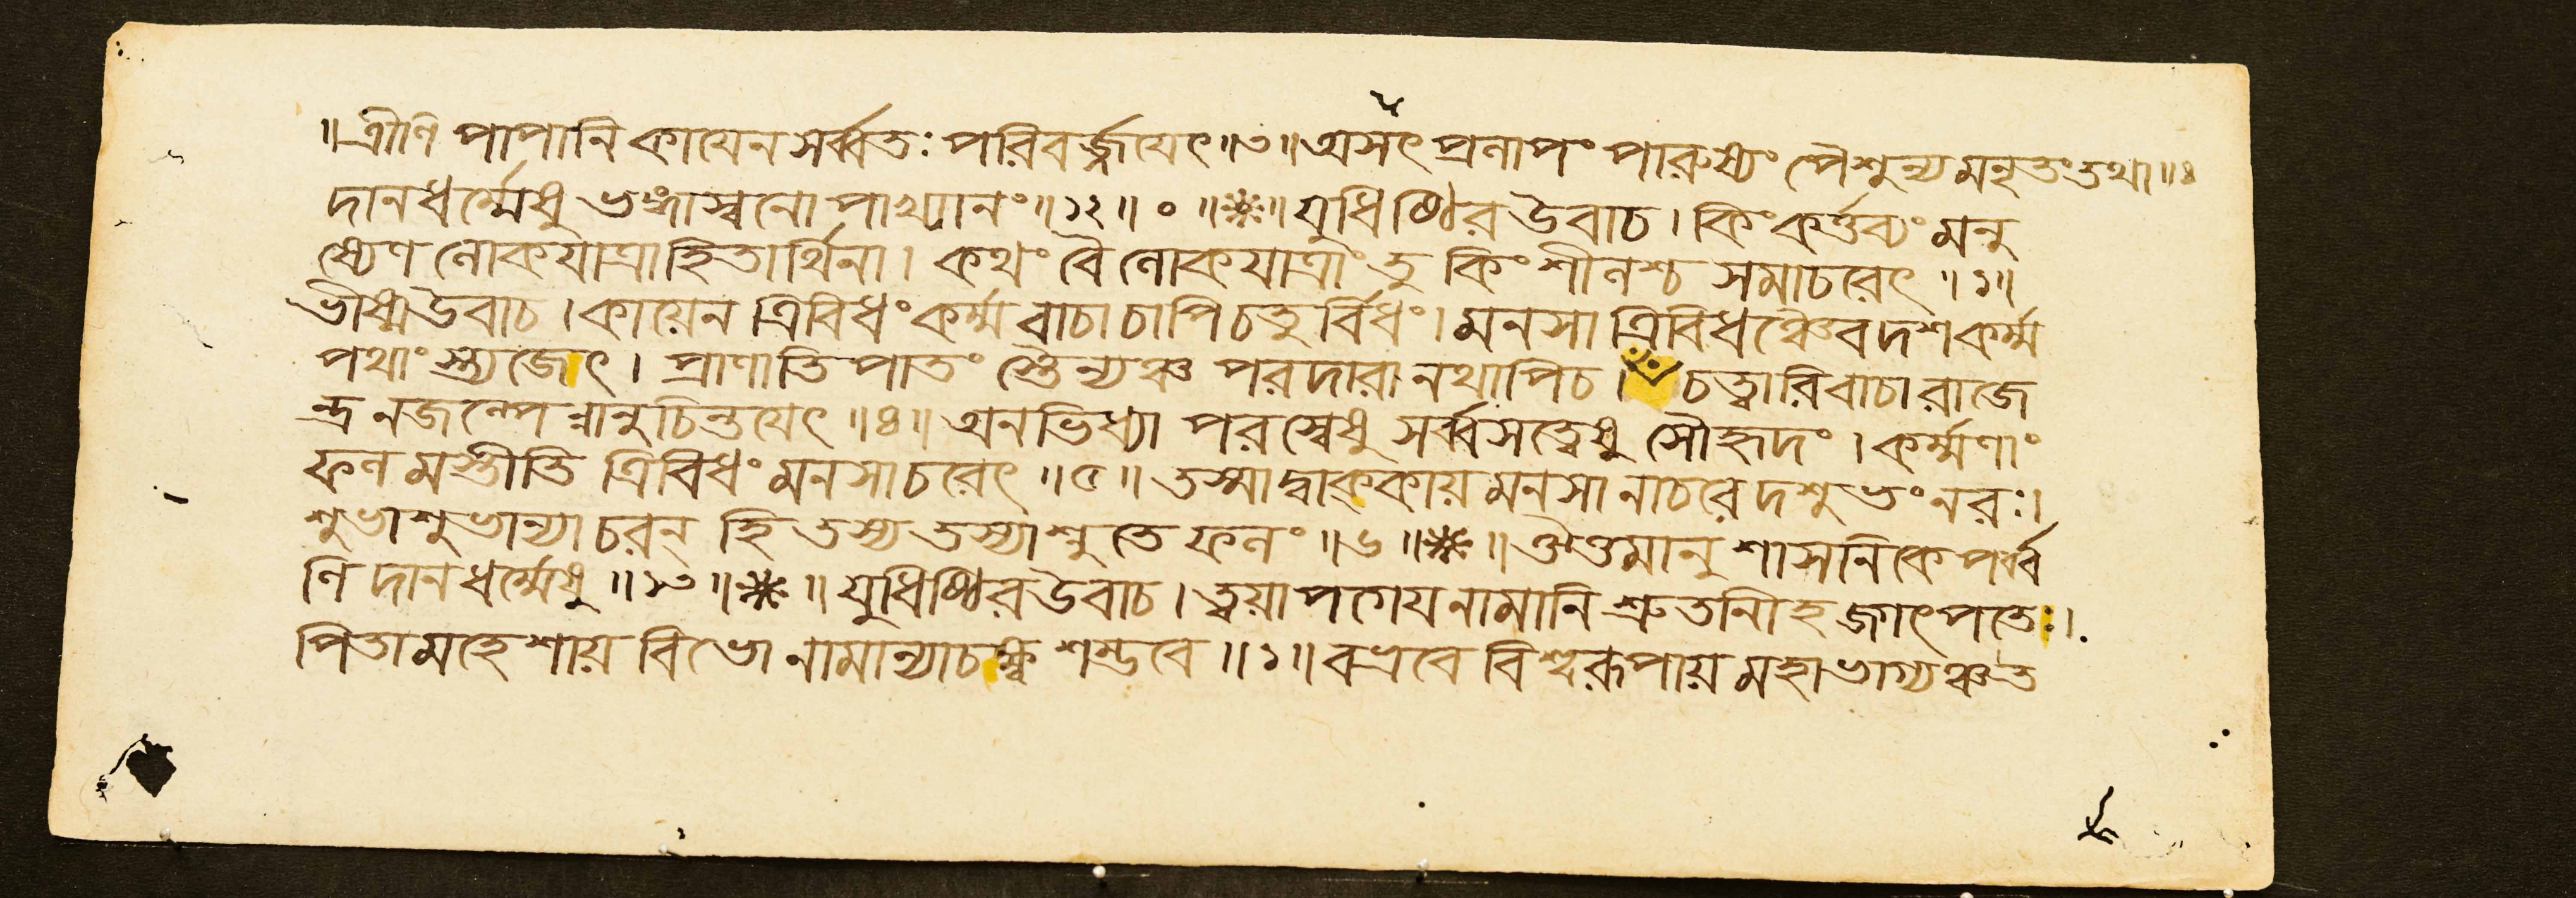 ॥ত্রীণি পাপানি কাযেন সর্ব্বতঃ পরিবর্জ্জযেৎ॥৩॥অসৎ প্রলাপং পারুষ্যং পৈশুন্যমনৃতং তথা॥৪
দানধর্ম্মেষু ভঙ্গাস্বনোপাখ্যানং॥১২॥ ० ॥❋॥যুধিষ্ঠির উবাচ। কিং কর্ত্তব্যং মনু
ষ্যেণ লোকযাত্রাহিতার্থিনা। কথং বৈ লোকযাত্রাং তু কিং শীলশ্চ সমাচরেৎ ॥১॥
ভীষ্মউবাচ। কায়েন ত্রিবিধং কর্ম্ম বাচা চাপি চতুর্বিধং। মনসা ত্রিবিধঞ্চৈব দশ কর্ম্ম
পথাংস্ত্যজেৎ। প্রাণাতিপাতং স্তৈন্যঞ্চ পরদারানথাপি চ। চত্বারি বাচা রাজে
ন্দ্র নজল্পেন্নানুচিন্তযেৎ॥৪॥ অনভিধ্যা পরস্বেষু সর্ব্বসত্ত্বেষু সৌহৃদং। কর্ম্মণাং
ফলমস্তীতি ত্রিবিধং মনসাচরেৎ ॥৫॥ তস্মাদ্বাক্কায়মনসা নাচরেদশুভং নরঃ।
শুভাশুভান্যাচরন্ হি তস্য তস্যাশ্নুতে ফলং॥৬॥❋॥ঔত্তমানুশাসনিকে পর্ব্ব
ণি দানধর্ম্মেষু॥১৩॥❋॥যুধিষ্ঠিরউবাচ। ত্বয়াপগেযনামানি শ্রুতানীহ জগৎপতেঃ।
পিতামহেশায় বিভো নামান্যাচক্ষ্ব শম্ভবে॥১॥বভ্রবে বিশ্বরূপায় মহাভাগ্যঞ্চ ত